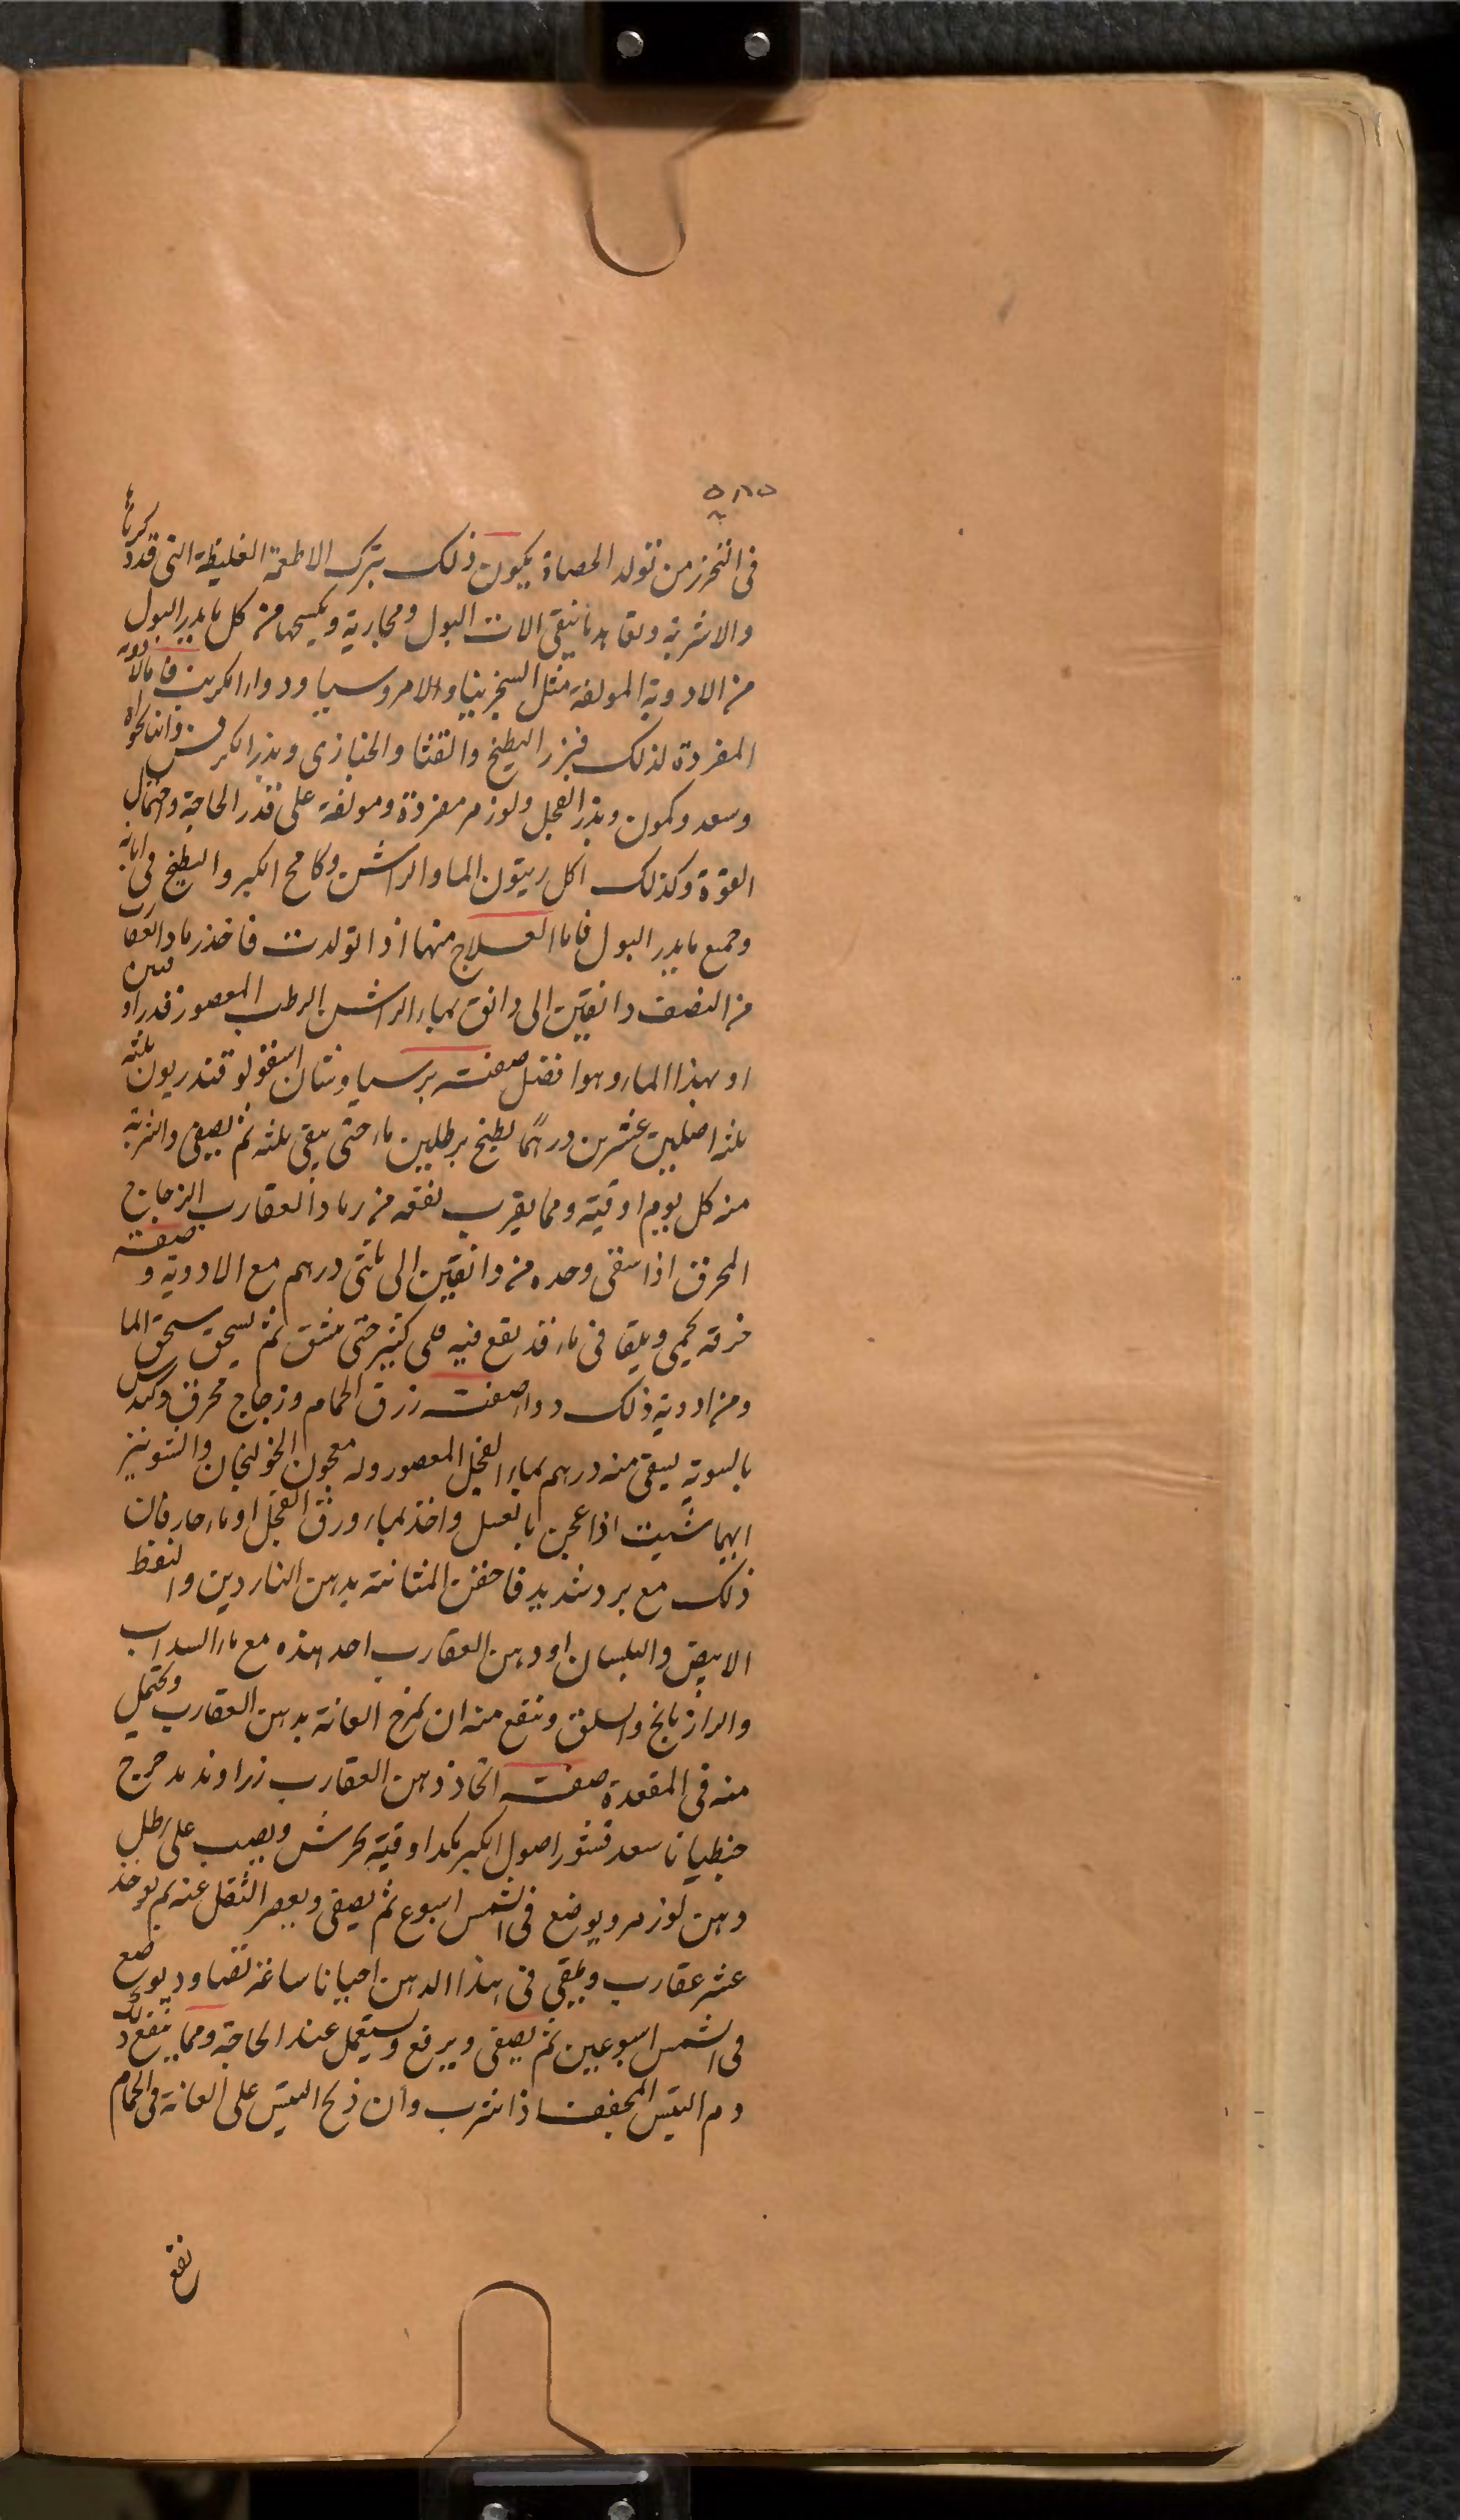 في التحرز من تولد الحصاة يكون ذلك بترك الاطعمة الغليظة التي قد ذكرناها
والاشربة وتعاهد ما ينقي الات البول ومجاريه ويكسحها من كل ما يدر البول
من الادوية المولفة مثل السجزينيا والامروسيا ودواء الكبريت فاما الادوية
المفردة لذلك فبزر البطيخ والقثا والخبازى وبذر الكرفس وانانخواه
وسعد وكمون وبذر الفجل ولوز مر مفردة ومولفة على قدر الحاجة واحتمال
القوة وكذلك اكل زيتون الما والراشن وكامخ الكبر والبطيخ في ابانه
وجميع ما يدر البول فاما العلاج منها اذا تولدت فاخذ رماد العقارب
من النصف دانقين الى دانق بماء الراشن الرطب المعصور قدر اوقية
او بهذا الماء وهو افضل صفته برسياوشان اسقولوقندريون ثلثه
ثلثه اصلين عشرين درهما يطبخ برطلين ماء حتى يبقى ثلثه ثم يصفى والشربة
منه كل يوم اوقية ومما يقرب نفعه من رماد العقارب الزجاج
المحرق اذا سقى وحده من دانقين الى ثلثى درهم مع الادوية وصفته
خرقة يحمى ويلقا في ماء قد يقع فيه قلى كثير حتى يتشقق ثم يسحق سحق الما
ومن ادوية ذلك دواء صفته زرق الحمام وزجاج محرق وكندس
بالسوية يسقى منه درهم بماء الفجل المعصور وله معجون الخولنجان والشونيز
ايهما شيت اذا عجن بالعسل واخذ بماء ورق الفجل او ماء حار فان
ذلك مع برد شديد فاحقن المثانة بدهن الناردين والنفط
الابيض والبلسان او دهن العقارب احد هذه مع ماء السداب
والرازيانج والسلق وينفع منه ان يمرخ العانة بدهن العقارب ويحتمل
منه في المقعدة صفة اتخاذ دهن العقارب زراوند مدحرج
جنطيانا سعد قشور اصول الكبر بكد اوقية يجرش ويصب على رطل
دهن لوز مر ويوضع في الشمس اسبوع ثم يصفى ويعصر الثقل عنه ثم يوخذ
عشر عقارب ويلقى في هذا الدهن احيانا ساعة تصاد ويوضع
في الشمس اسبوعين ثم يصفى ويرفع ويستعمل عند الحاجة ومما ينفع ذلك
دم التيس المجفف اذا شرب وأن ذبح التيس على العانة في الحمام
نفع